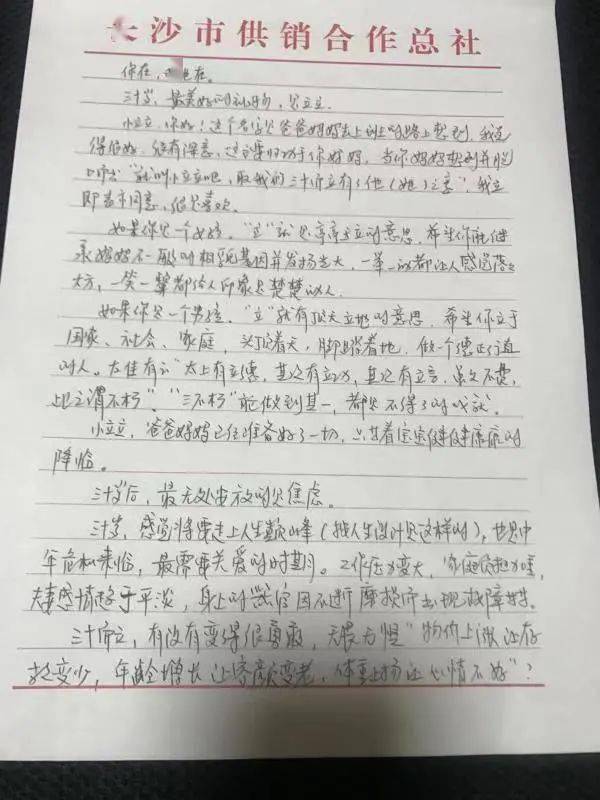 长沙市供销合作总社
你在，也在。
三十岁，最美好的礼物，是立立。
小立立，你好！这个名字是爸爸妈妈去上班的路上想到，我觉
得很好，很有深意，这主要归功于你妈妈，当你妈妈想到并脱
口而出"就叫小立立吧，取我们三十而立有了他（她）之意"，我立
即当下同意，很是喜欢。
如果你是一个女孩，"立"就是亭亭玉立的意思，希望你能继
承妈妈不一般的相貌基因并发扬光大，一举一动都让人感觉落落
大方，一笑一颦都给人印象是楚楚动人。
如果你是一个男孩，"立"就有顶天立地的意思，希望你立于
国家、社会、家庭，头顶着天，脚踏着地，做一个德正行直
的人。左传有云"太上有立德，其次有立功，其次有立言，虽久不废，
此之谓不朽"，"三不朽"能做到其一，都是不得了的成就。
小立立，爸爸妈妈已经准备好了一切，只等着宝宝健健康康的
降临。
三十岁后，最无处安放的是焦虑。
三十岁，感觉将要走上人生巅峰（我人生设计是这样的），也是中
年危机来临，最需要关爱的时期。工作压力变大，家庭负担加重，
夫妻感情趋于平淡，身上的器官因不断磨损而出现故障期。
三十而立，有没有变得很勇敢，无畏无惧"物价上涨让存
款变少，年龄增长让容颜变老，体重上扬让心情不好"？